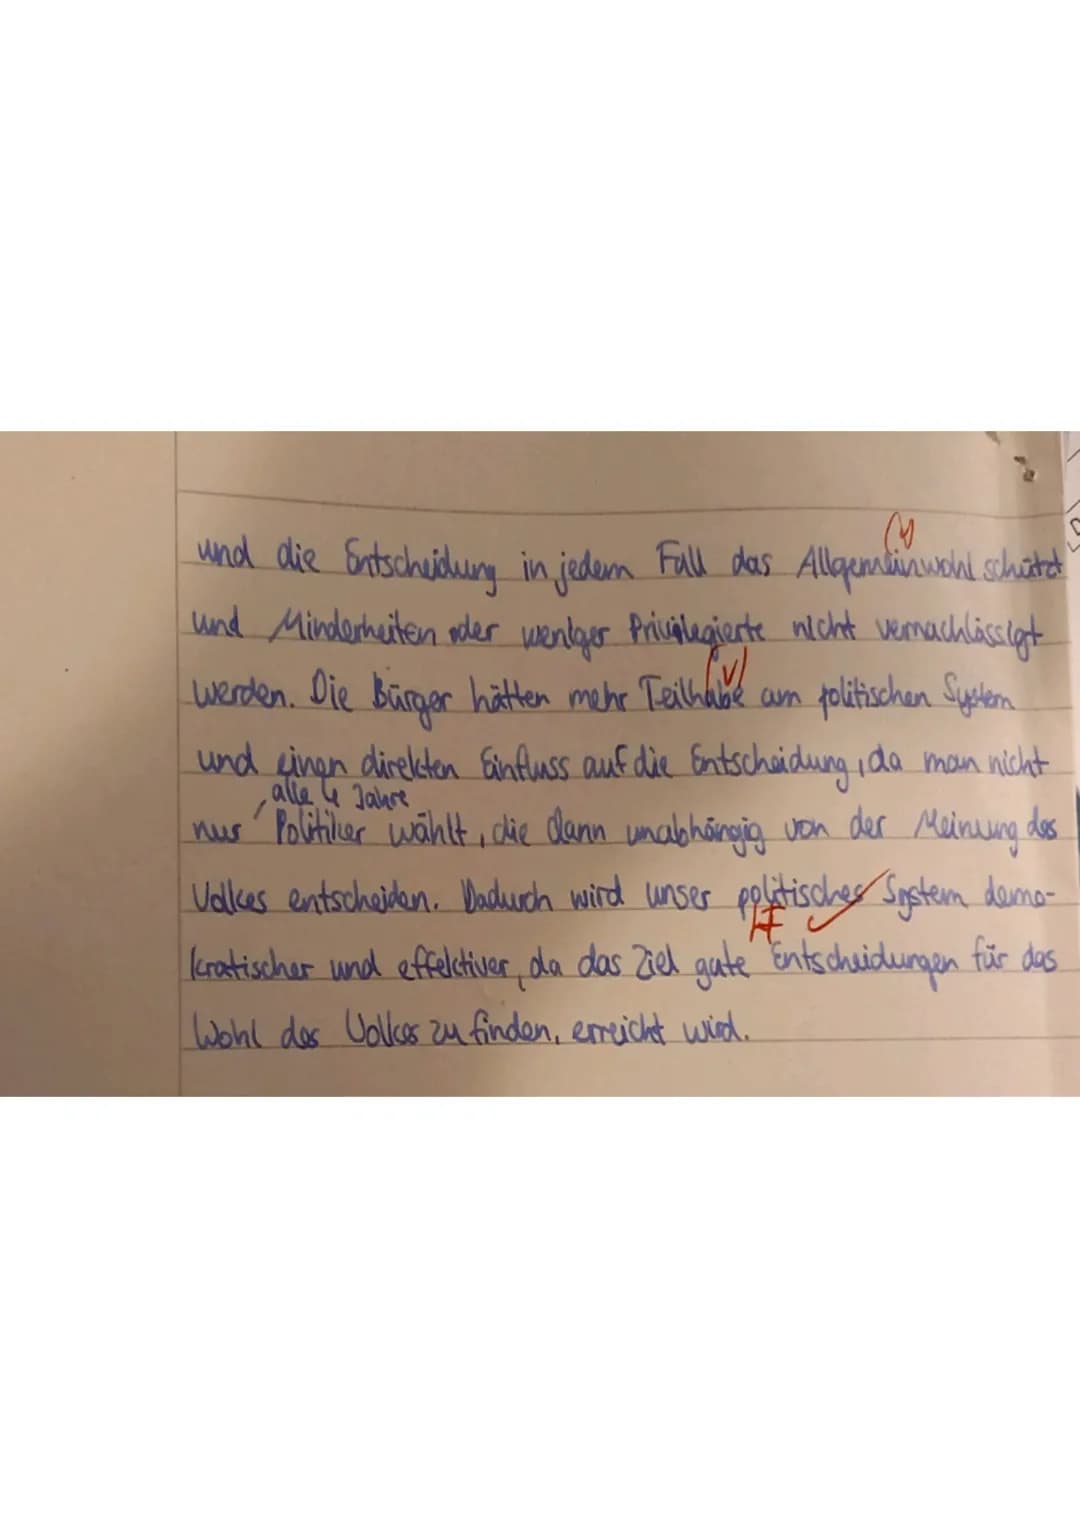 und die Entscheidung in jedem Fall das Allgemeinwohl schützt
und Minderheiten oder weniger Privilegierte nicht vernachlässigt
werden. Die Bürger hätten mehr Teilhabe am politischen System
und einen direkten Einfluss auf die Entscheidung, da man nicht
alle 4 Jahre
nur Politiker wählt, die dann unabhängig von der Meinung des
Volkes entscheiden. Dadurch wird unser politisches System demo-
kratischer und effektiver, da das Ziel gute Entscheidungen für das
Wohl des Volkes zu finden, erreicht wird.